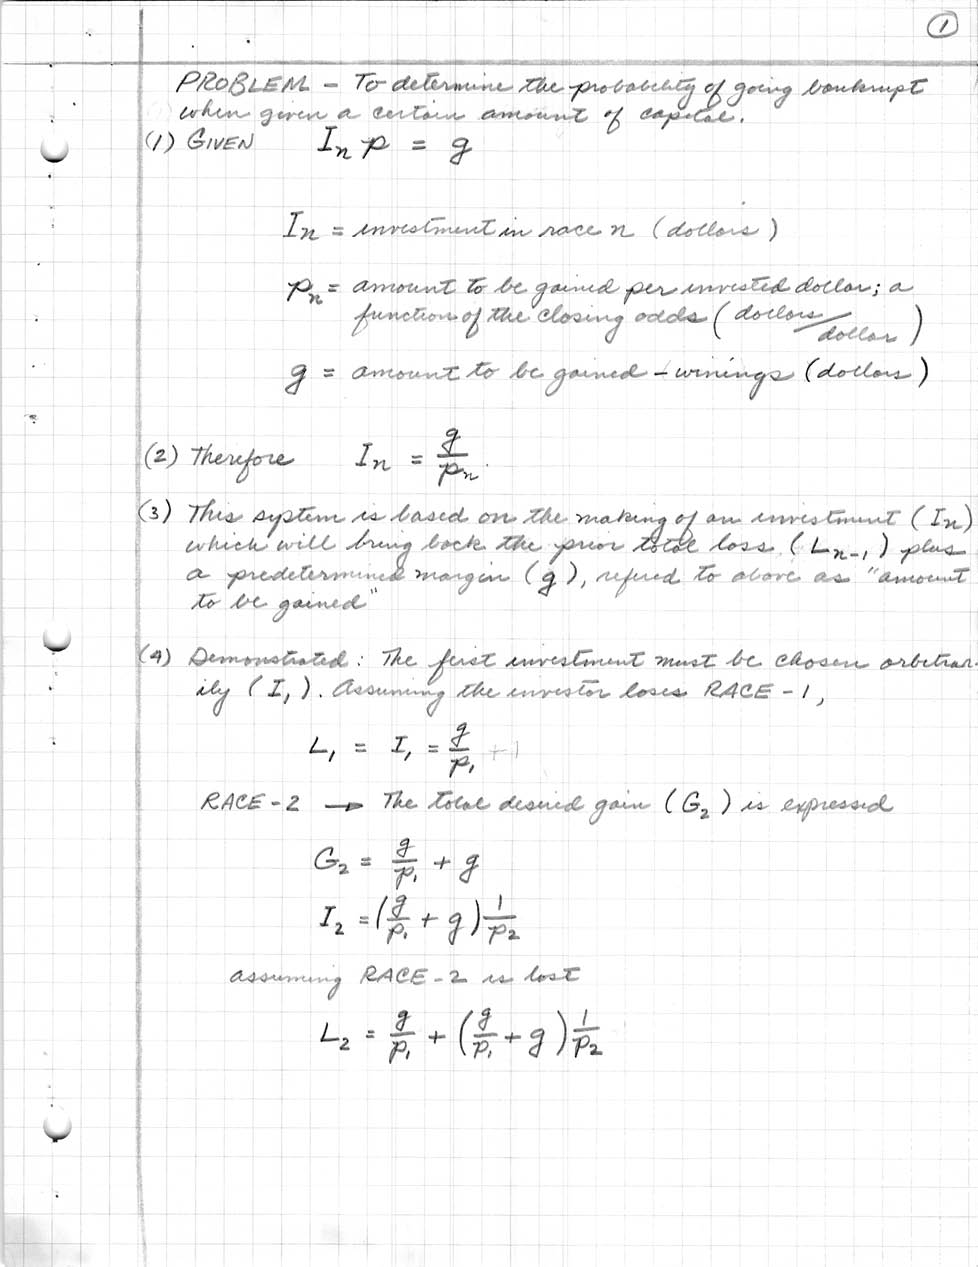 1
PROBLEM - To determine the probability of going bankrupt
when given a certain amount of capital.
(1) GIVEN Iₙ p = g
Iₙ = investment in race n (dollars)
pₙ = amount to be gained per invested dollar; a
function of the closing odds (dollars/dollar)
g = amount to be gained - winings (dollars)
(2) Therefore Iₙ = g/pₙ.
(3) This system is based on the making of an investment (Iₙ)
which will bring back the prior total loss (Lₙ₋₁) plus
a predetermined margin (g), refered to above as "amount
to be gained"
(4) Demonstrated: The first investment must be chosen arbitrar-
ily (I₁). Assuming the investor loses RACE-1,
L₁ = I₁ = g/p₁ +1
RACE-2 → The total desired gain (G₂) is expressed
G₂ = g/p₁ + g
I₂ = (g/p₁ + g) 1/p₂
assuming RACE-2 is lost
L₂ = g/p₁ + (g/p₁ + g) 1/p₂